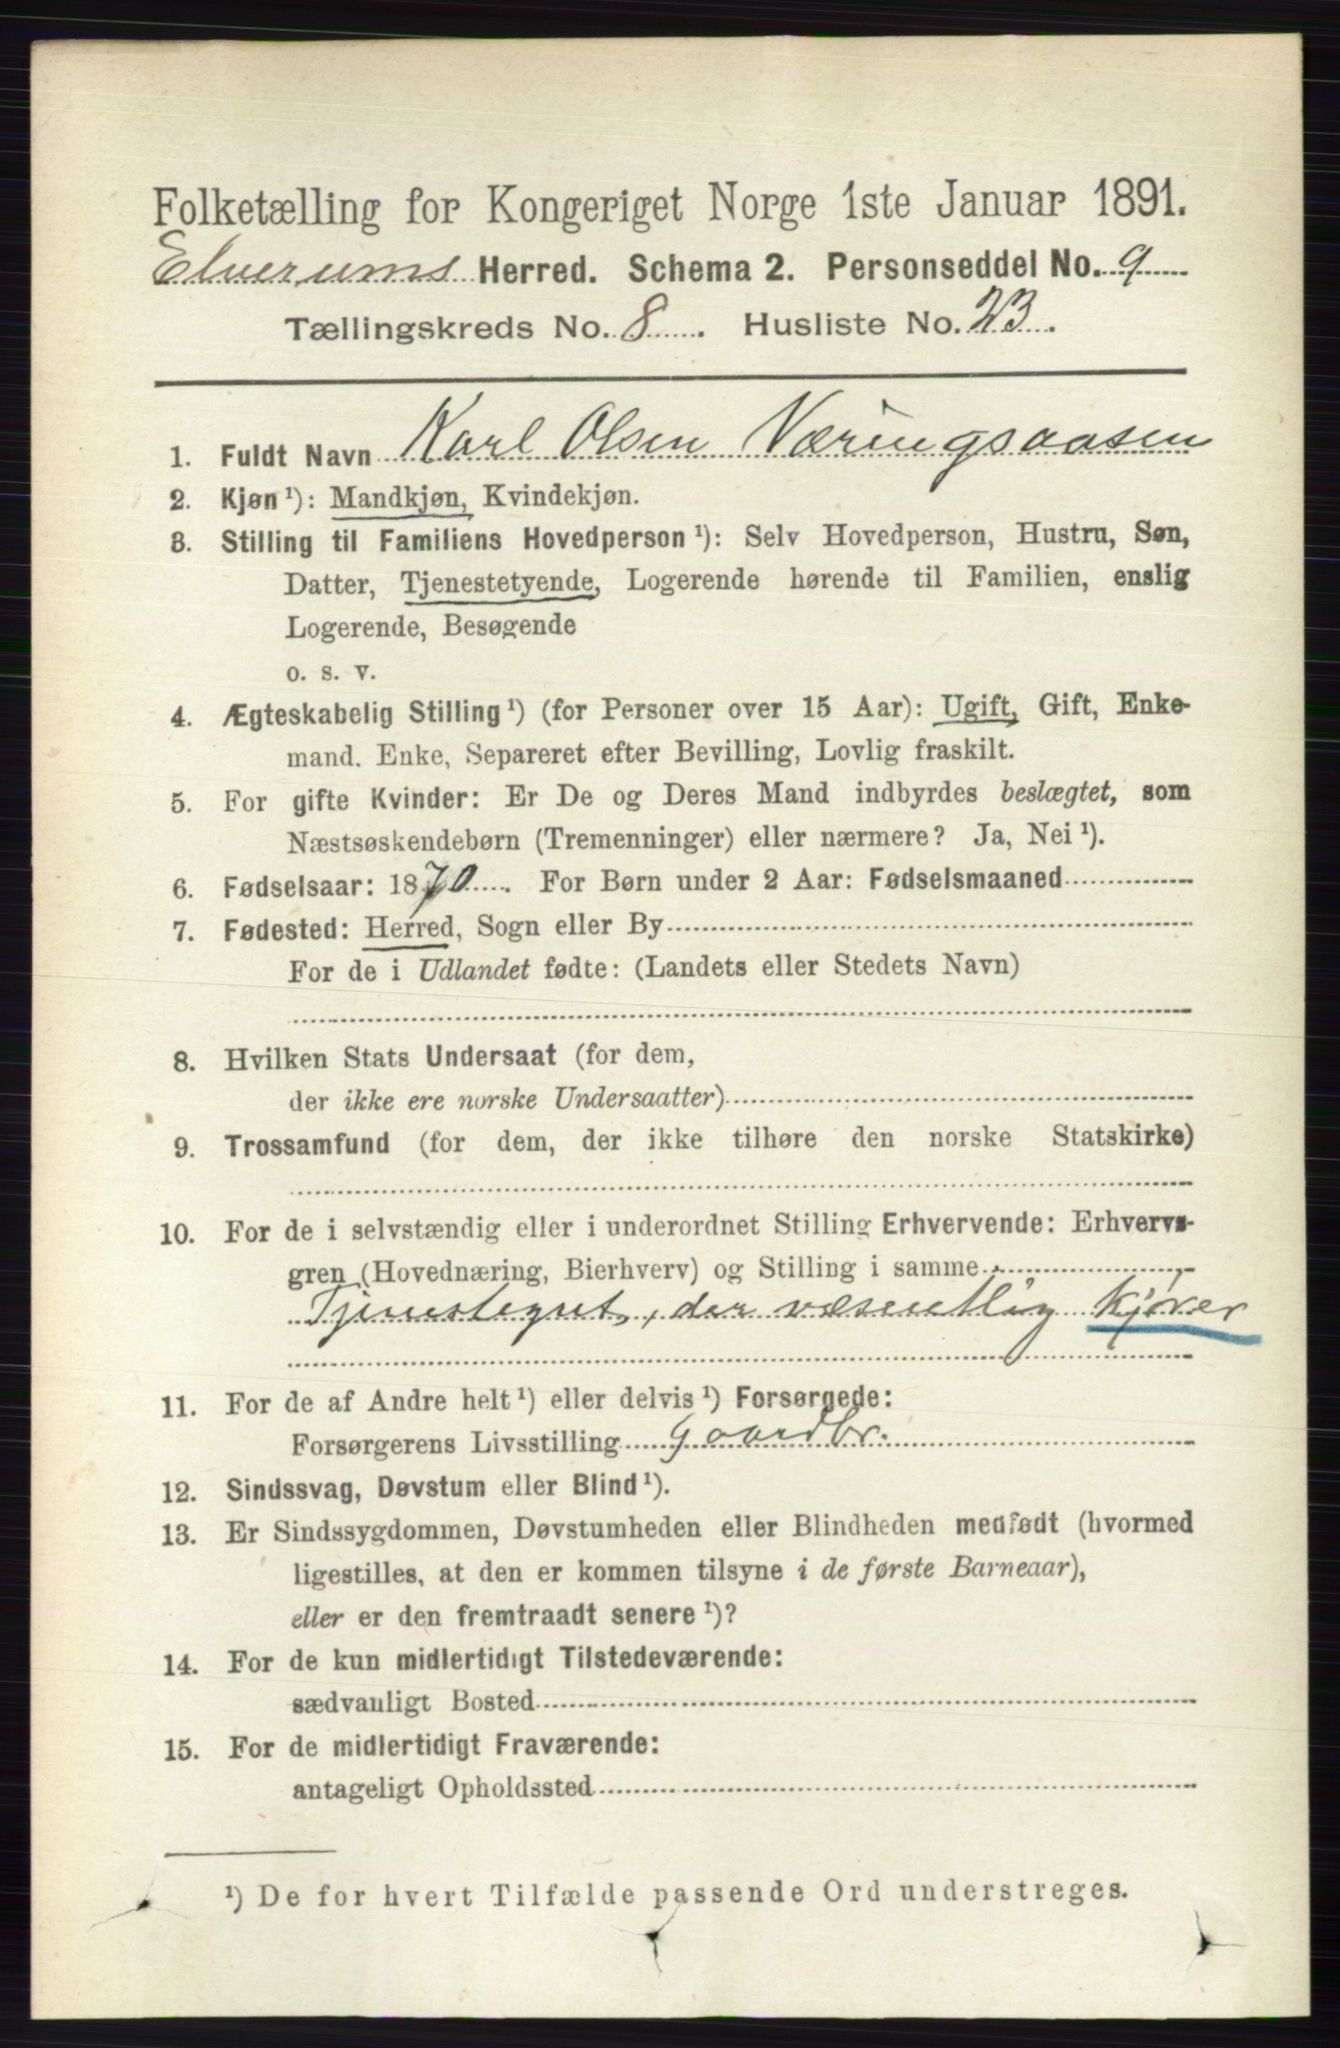 Folketælling for Kongeriget Norge 1ste Januar 1891.
Elverums Herred. Schema 2. Personseddel No. 9
Tællingskreds No. 8. Husliste No. 23.
1. Fuldt Navn Karl Olsen Væringsaasen
2. Kjøn ¹): Mandkjøn, Kvindekjøn.
3. Stilling til Familiens Hovedperson ¹): Selv Hovedperson, Hustru, Søn,
Datter, Tjenestetyende, Logerende hørende til Familien, enslig
Logerende, Besøgende
o. s. v.
4. Ægteskabelig Stilling ¹) (for Personer over 15 Aar): Ugift, Gift, Enke-
mand. Enke, Separeret efter Bevilling, Lovlig fraskilt.
5. For gifte Kvinder: Er De og Deres Mand indbyrdes beslægtet, som
Næstsøskendebørn (Tremenninger) eller nærmere? Ja, Nei ¹).
6. Fødselsaar: 1870. For Børn under 2 Aar: Fødselsmaaned
7. Fødested: Herred, Sogn eller By
For de i Udlandet fødte: (Landets eller Stedets Navn)
8. Hvilken Stats Undersaat (for dem,
der ikke ere norske Undersaatter)
9. Trossamfund (for dem, der ikke tilhøre den norske Statskirke)
10. For de i selvstændig eller i underordnet Stilling Erhvervende: Erhvervs-
gren (Hovednæring, Bierhverv) og Stilling i samme
Tjenestegut, der væsentlig kjører
11. For de af Andre helt ¹) eller delvis ¹) Forsørgede:
Forsørgerens Livsstilling Gaardbr.
12. Sindssvag, Døvstum eller Blind ¹).
13. Er Sindssygdommen, Døvstumheden eller Blindheden medfødt (hvormed
ligestilles, at den er kommen tilsyne i de første Barneaar),
eller er den fremtraadt senere ¹)?
14. For de kun midlertidigt Tilstedeværende:
sædvanligt Bosted
15. For de midlertidigt Fraværende:
antageligt Opholdssted
¹) De for hvert Tilfælde passende Ord understreges.